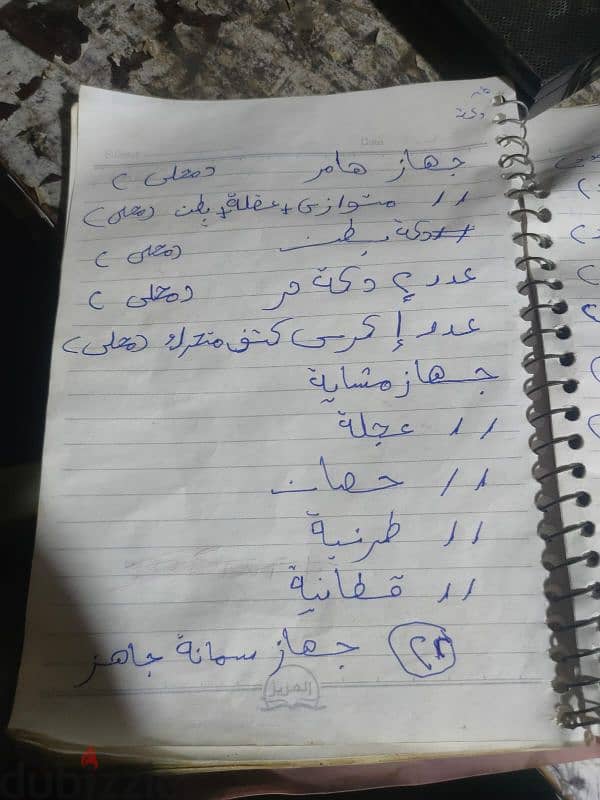 جهاز هامر (محلى)
// متوازى + عقلة + بطن (محلى)
دكة بطن (محلى)
عدد ٢ دكة حر (محلى)
عدد ١ كرسى كتف متحرك (محلى)
جهاز مشاية
// عجلة
// حصان
// طرنبة
// قطانية
جهاز سمانة جاهز
المزيز
dubizzle